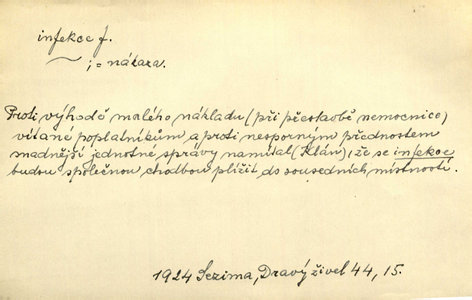 infekce f.
~ ; = nákaza.
Proti výhodě malého nákladu (při přestavbě nemocnice)
vítané poplatníkům a proti nesporným přednostem
snadnější jednotné správy namítal (Klán), že se infekce
budou společnou chodbou plížit do sousedních místností.
1924 Sezima, Dravý živel 44, 15.